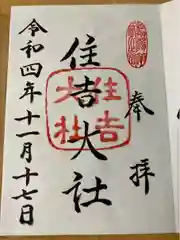 奉拝
住吉大社
住吉大社
令和四年十一月十七日